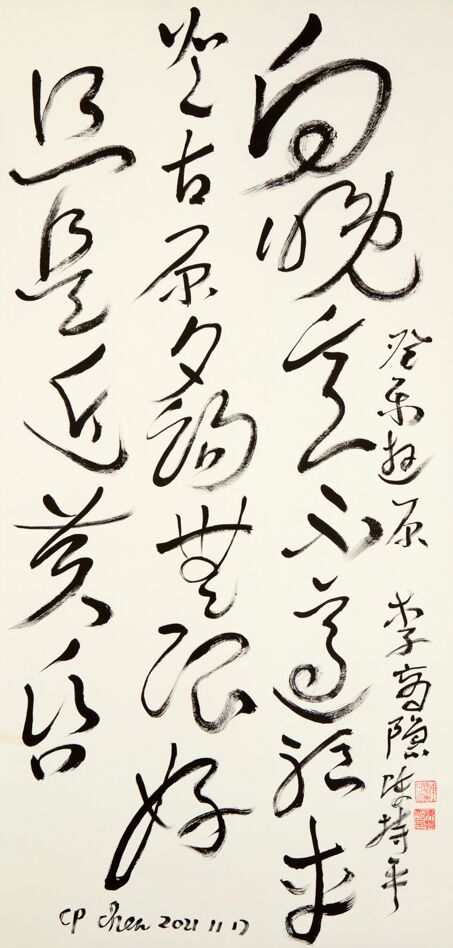 登樂遊原 李商隱 陳持平
向晚意不適驅車
登古原夕陽無限好
只是近黃昏
CP Chen 2021 11 17